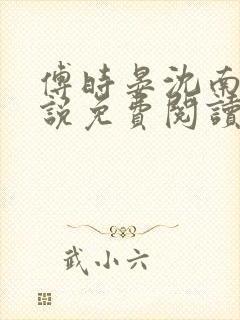 傅時晏沈南
說免費閱讀
武小六